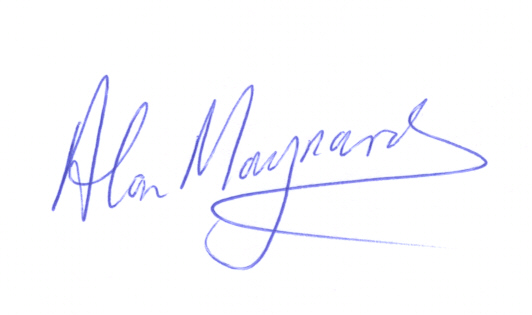 Alan Maynard